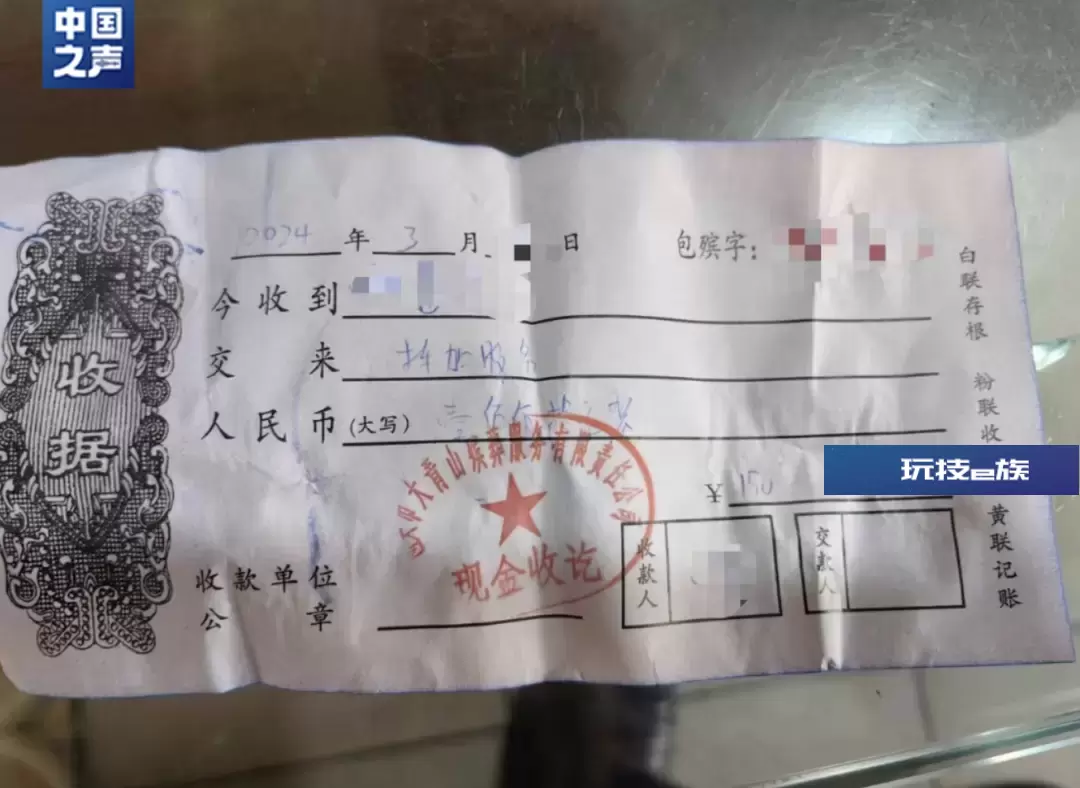 中国
之声
2024 年 3 月 日 包殡字:
今收到
交来
人民币(大写)
¥ 150
收据
收款单位
公章
大青山殡葬服务有限责任公司
现金收讫
收款人
交款人
白联存根
粉联收
黄联记账
玩技e族